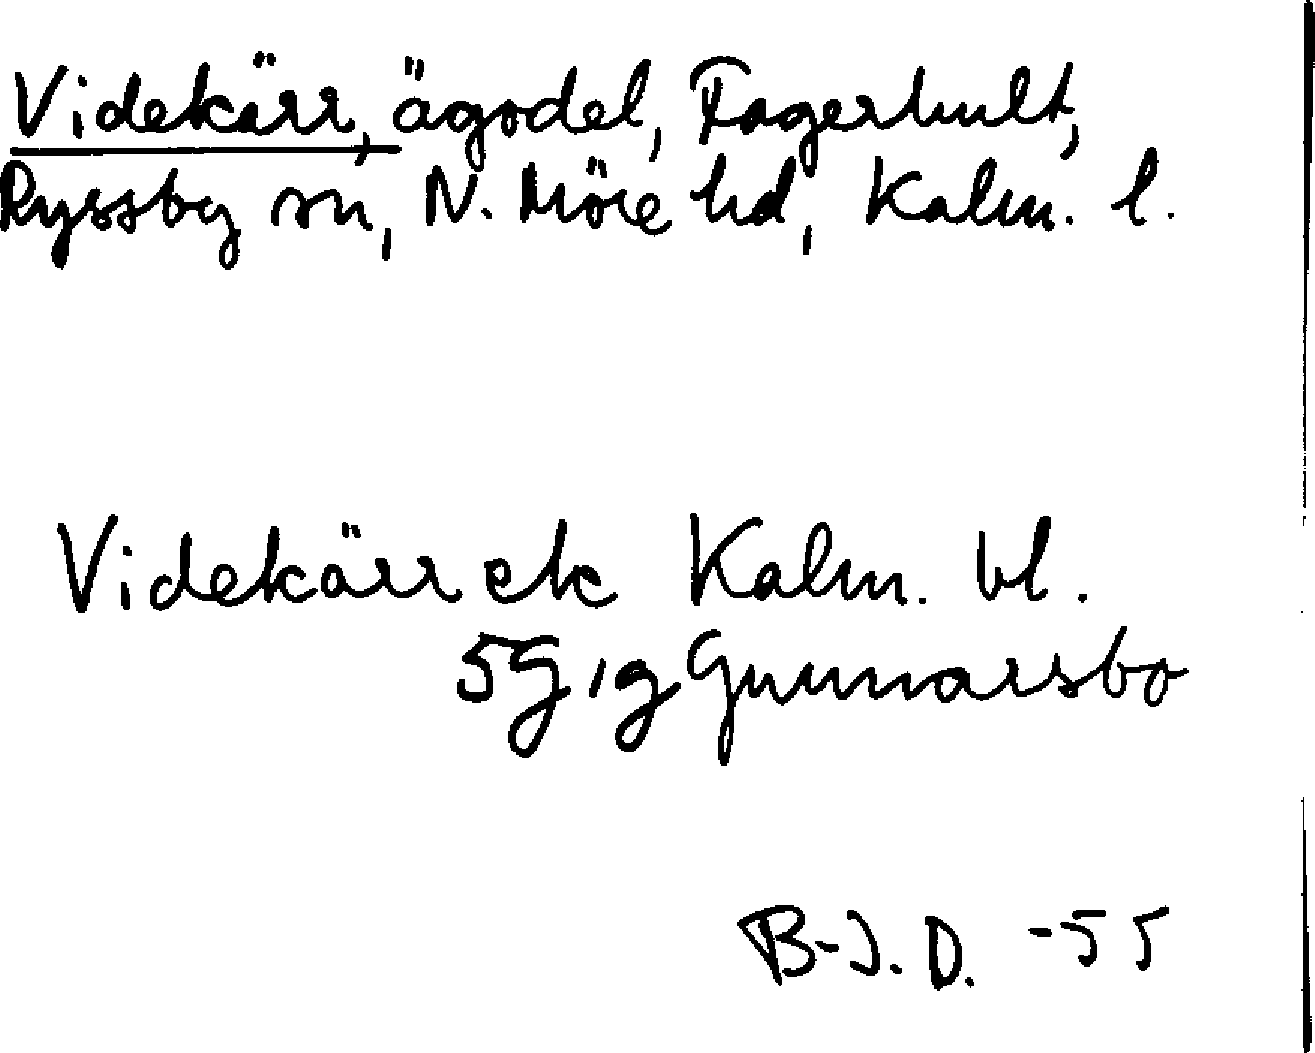 Videkärr, ägodel, Fagerhult,
Ryssby sn, N. Möre hd, Kalm. l.
Videkärr ek Kalm. bl.
5G, 1g Gunnarsbo
B-J. D. -55